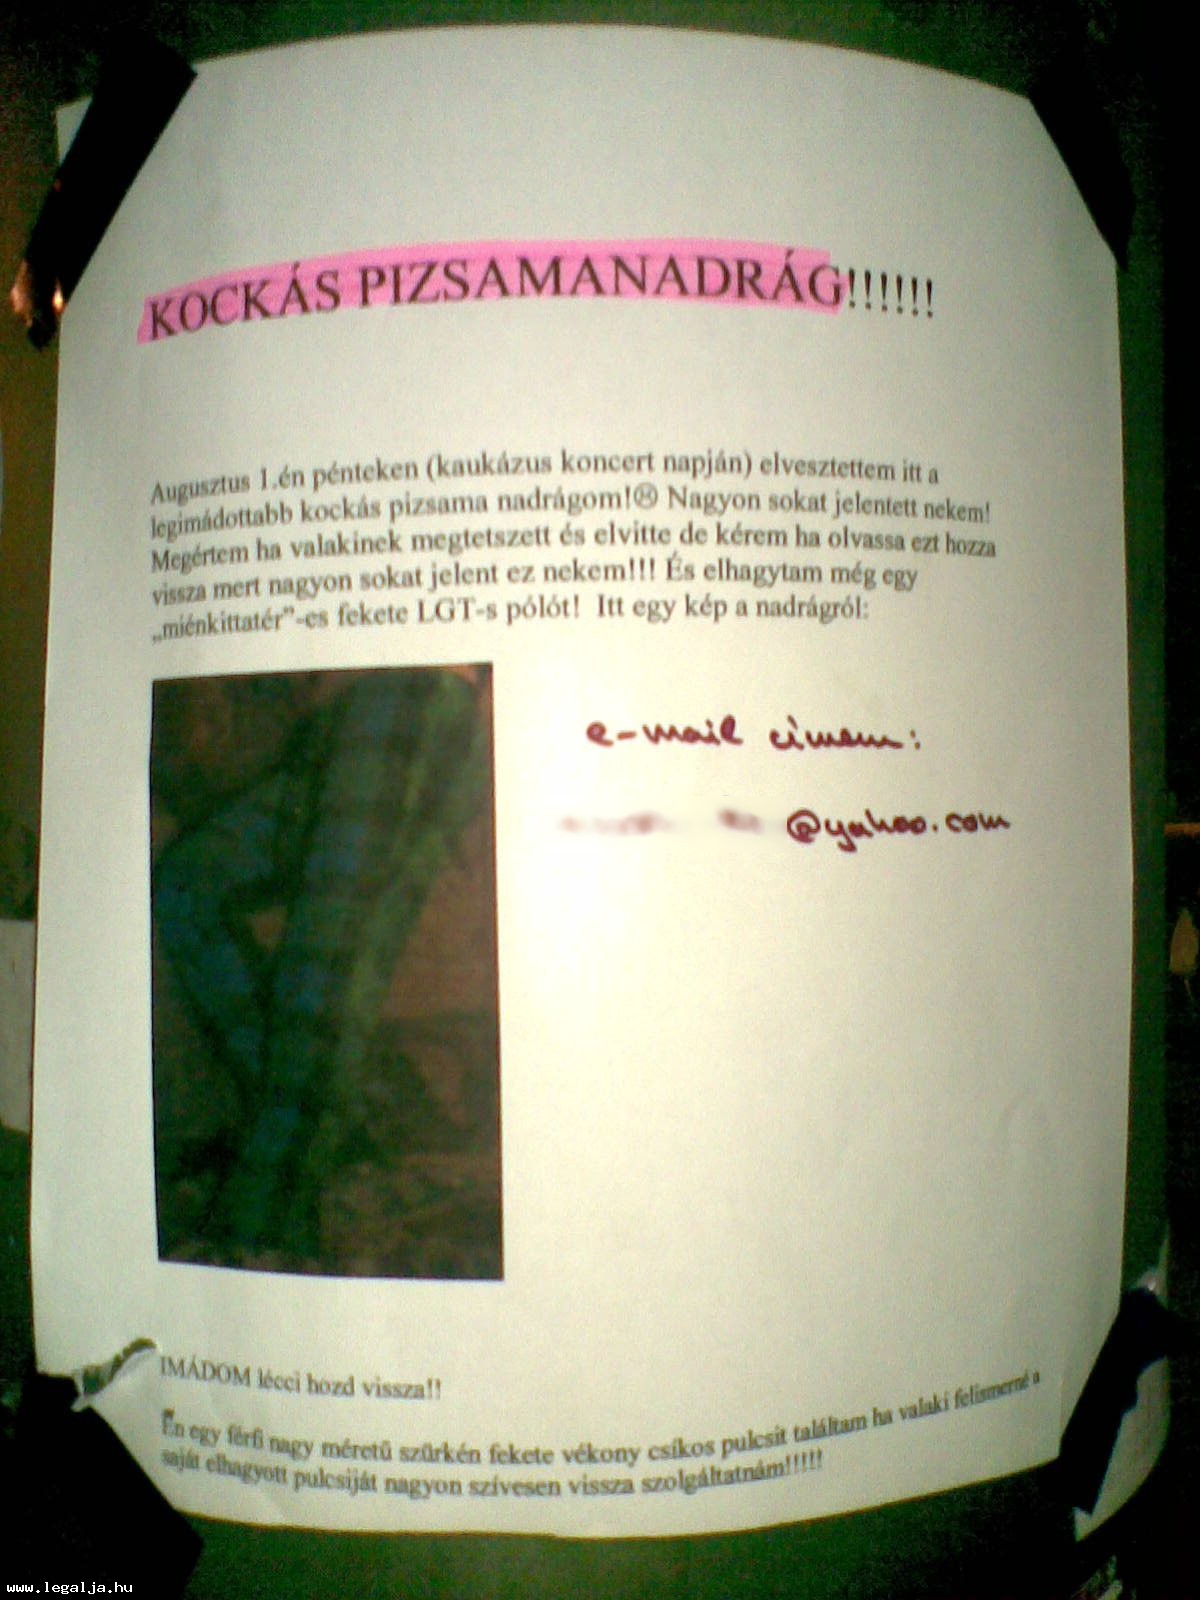 KOCKÁS PIZSAMANADRÁG!!!!!!
Augusztus 1.én pénteken (kaukázus koncert napján) elvesztettem itt a
legimádottabb kockás pizsama nadrágom!☹ Nagyon sokat jelentett nekem!
Megértem ha valakinek megtetszett és elvitte de kérem ha olvassa ezt hozza
vissza mert nagyon sokat jelent ez nekem!!! És elhagytam még egy
„miénkittatér”-es fekete LGT-s pólót! Itt egy kép a nadrágról:
e-mail címem:
@yahoo.com
IMÁDOM lécci hozd vissza!!
Én egy férfi nagy méretű szürkén fekete vékony csíkos pulcsit találtam ha valaki felismerné a
saját elhagyott pulcsiját nagyon szívesen vissza szolgáltatnám!!!!!
www.legalja.hu